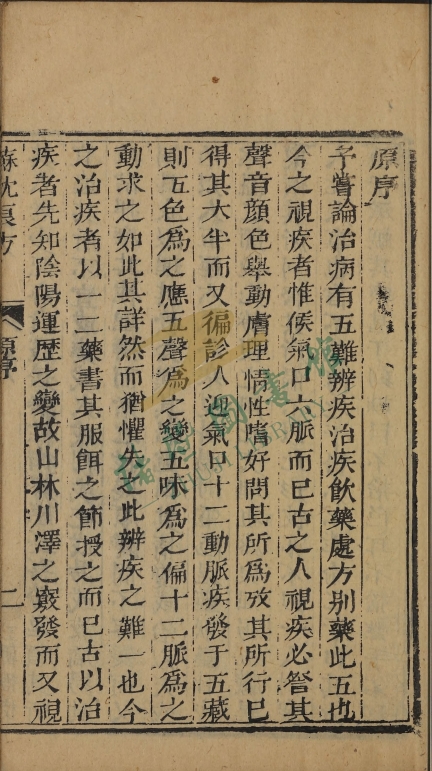 原序
予嘗論治病有五難辨疾治疾飲藥處方別藥此五也
今之視疾者惟候氣口六脈而已古之人視疾必詧其
聲音顔色舉動膚理情性嗜好問其所爲攷其所行已
得其大半而又徧診人迎氣口十二動脈疾發于五藏
則五色爲之應五聲爲之變五味爲之偏十二脈爲之
動求之如此其詳然而猶懼失之此辨疾之難一也今
之治疾者以一二藥書其服餌之節授之而已古以治
疾者先知陰陽運歴之變故山林川澤之竅發而又視
蘇沈良方
原序
二